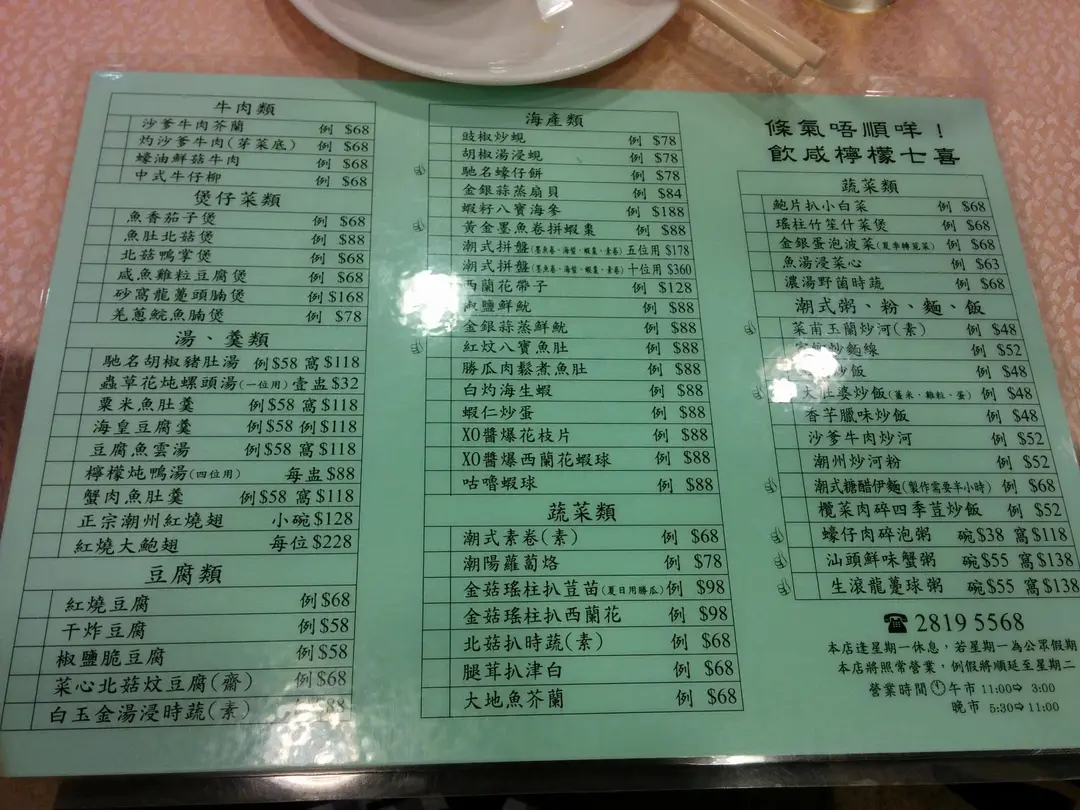 牛肉類
沙爹牛肉芥蘭 例 $68
灼沙爹牛肉(芽菜底) 例 $68
蠔油鮮菇牛肉 例 $68
中式牛仔柳 例 $68
煲仔菜類
魚香茄子煲 例 $68
魚肚北菇煲 例 $88
北菇鴨掌煲 例 $68
咸魚雞粒豆腐煲 例 $68
砂窩龍躉頭腩煲 例 $168
羌蔥鯇魚腩煲 例 $78
湯、羹類
馳名胡椒豬肚湯 例$58 窩$118
蟲草花炖螺頭湯(一位用) 壹盅$32
粟米魚肚羹 例$58 窩$118
海皇豆腐羹 例$58 例$118
豆腐魚雲湯 例$58 窩$118
檸檬炖鴨湯(四位用) 每盅$88
蟹肉魚肚羹 例$58 窩$118
正宗潮州紅燒翅 小碗$128
紅燒大鮑翅 每位$228
豆腐類
紅燒豆腐 例$68
干炸豆腐 例$58
椒鹽脆豆腐 例$58
菜心北菇炆豆腐(齋) 例$68
白玉金湯浸時蔬(素) $88
海產類
豉椒炒蜆 例 $78
胡椒湯浸蜆 例 $78
馳名蠔仔餅 例 $78
金銀蒜蒸扇貝 例 $84
蝦籽八寶海參 例 $188
黃金墨魚卷拼蝦棗 例 $88
潮式拼盤(墨魚卷、海蜇、蝦棗、素卷) 五位用 $178
潮式拼盤(墨魚卷、海蜇、蝦棗、素卷) 十位用 $360
西蘭花帶子 例 $128
椒鹽鮮魷 例 $88
金銀蒜蒸鮮魷 例 $88
紅炆八寶魚肚 例 $88
勝瓜肉鬆煮魚肚 例 $88
白灼海生蝦 例 $88
蝦仁炒蛋 例 $88
XO醬爆花枝片 例 $88
XO醬爆西蘭花蝦球 例 $88
咕嚕蝦球 例 $88
蔬菜類
潮式素卷(素) 例 $68
潮陽蘿蔔烙 例 $78
金菇瑤柱扒荳苗(夏日用勝瓜) 例 $98
金菇瑤柱扒西蘭花 例 $98
北菇扒時蔬(素) 例 $68
腿茸扒津白 例 $68
大地魚芥蘭 例 $68
條氣唔順咩！
飲咸檸檬七喜
蔬菜類
鮑片扒小白菜 例 $68
瑤柱竹笙什菜煲 例 $68
金銀蛋泡波菜(夏季轉莧菜) 例 $68
魚湯浸菜心 例 $63
濃湯野菌時蔬 例 $68
潮式粥、粉、麵、飯
菜甫玉蘭炒河(素) 例 $48
炒麵線 例 $52
炒飯 例 $48
大肚婆炒飯(薑米、雞粒、蛋) 例 $48
香芋臘味炒飯 例 $48
沙爹牛肉炒河 例 $52
潮州炒河粉 例 $52
潮式糖醋伊麵(製作需要半小時) 例 $68
欖菜肉碎四季荳炒飯 例 $52
蠔仔肉碎泡粥 碗$38 窩$118
汕頭鮮味蟹粥 碗$55 窩$138
生滾龍躉球粥 碗$55 窩$138
☎ 2819 5568
本店逢星期一休息，若星期一為公眾假期
本店將照常營業，例假將順延至星期二
營業時間 午市 11:00⇨ 3:00
晚市 5:30⇨11:00